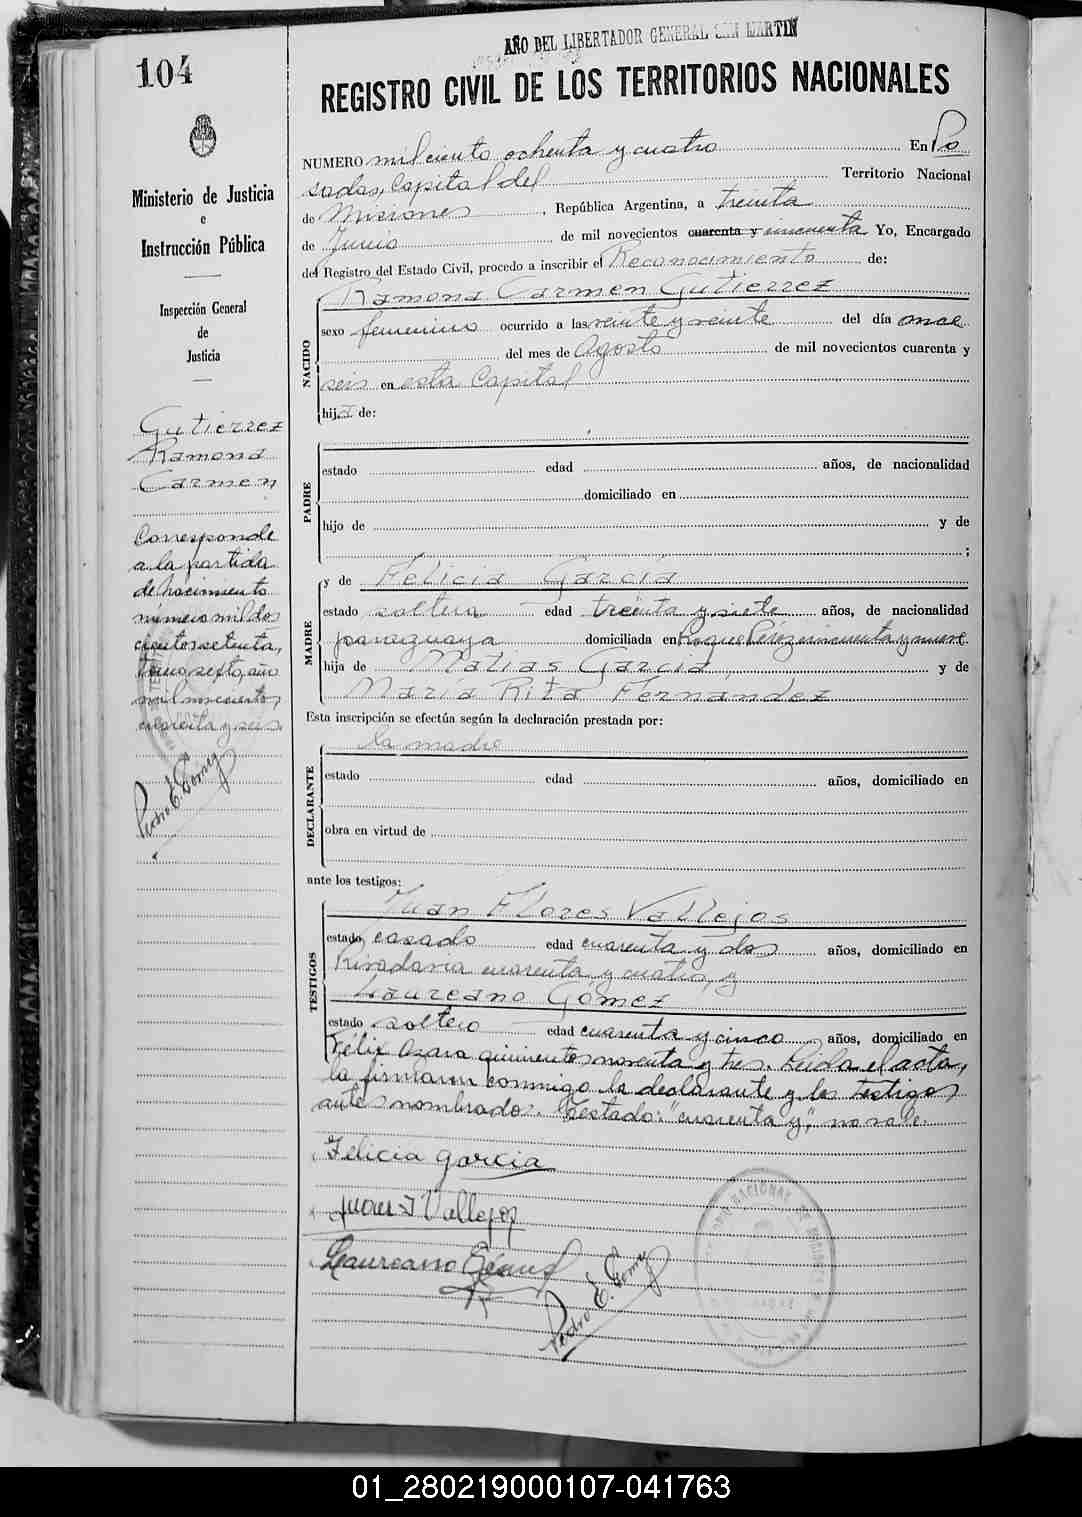 AÑO DEL LIBERTADOR GENERAL SAN MARTIN
104
REGISTRO CIVIL DE LOS TERRITORIOS NACIONALES
Ministerio de Justicia
e
Instrucción Pública
Inspección General
de
Justicia
Gutierrez
Ramona
Carmen
Corresponde
a la partida
de Nacimiento
número mil dos
cientos setenta,
tomo sexto, año
mil novecientos
cuarenta y seis.
Pedro E. Gomez
NUMERO mil ciento ochenta y cuatro En Po
sadas, Capital del Territorio Nacional
de Misiones, República Argentina, a treinta
de Junio de mil novecientos cuarenta y cincuenta Yo, Encargado
del Registro del Estado Civil, procedo a inscribir el Reconocimiento de:
NACIDO
Ramona Carmen Gutierrez
sexo femenino ocurrido a las veinte y veinte del día once
del mes de Agosto de mil novecientos cuarenta y
seis en esta Capital
hija de:
PADRE
estado edad años, de nacionalidad
domiciliado en
hijo de y de
;
MADRE
y de Felicia García
estado soltera edad treinta y siete años, de nacionalidad
paraguaya domiciliada en Roque Pérez cincuenta y nueve
hija de Matias García y de
María Rita Fernandez
Esta inscripción se efectúa según la declaración prestada por:
DECLARANTE
la madre
estado edad años, domiciliado en
obra en virtud de
ante los testigos:
TESTIGOS
Juan Flores Vallejos
estado casado edad cuarenta y dos años, domiciliado en
Rivadavia cuarenta y cuatro, y
Laureano Gómez
estado soltero edad cuarenta y cinco años, domiciliado en
Félix Azara quinientos noventa y tres. Leída el acta,
la firmaron conmigo la declarante y los testigos
antes nombrados. Testado: "cuarenta y", no vale.
Felicia garcia
Juan F Vallejos
Laureano Gómez
Pedro E. Gomez
01_280219000107-041763